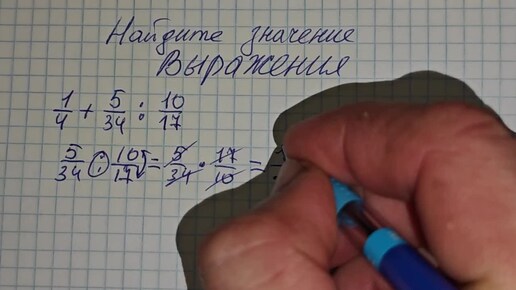 Найдите значение
Выражения
1/4 + 5/34 : 10/17
5/34 : 10/17 = 5/34 · 17/10 =